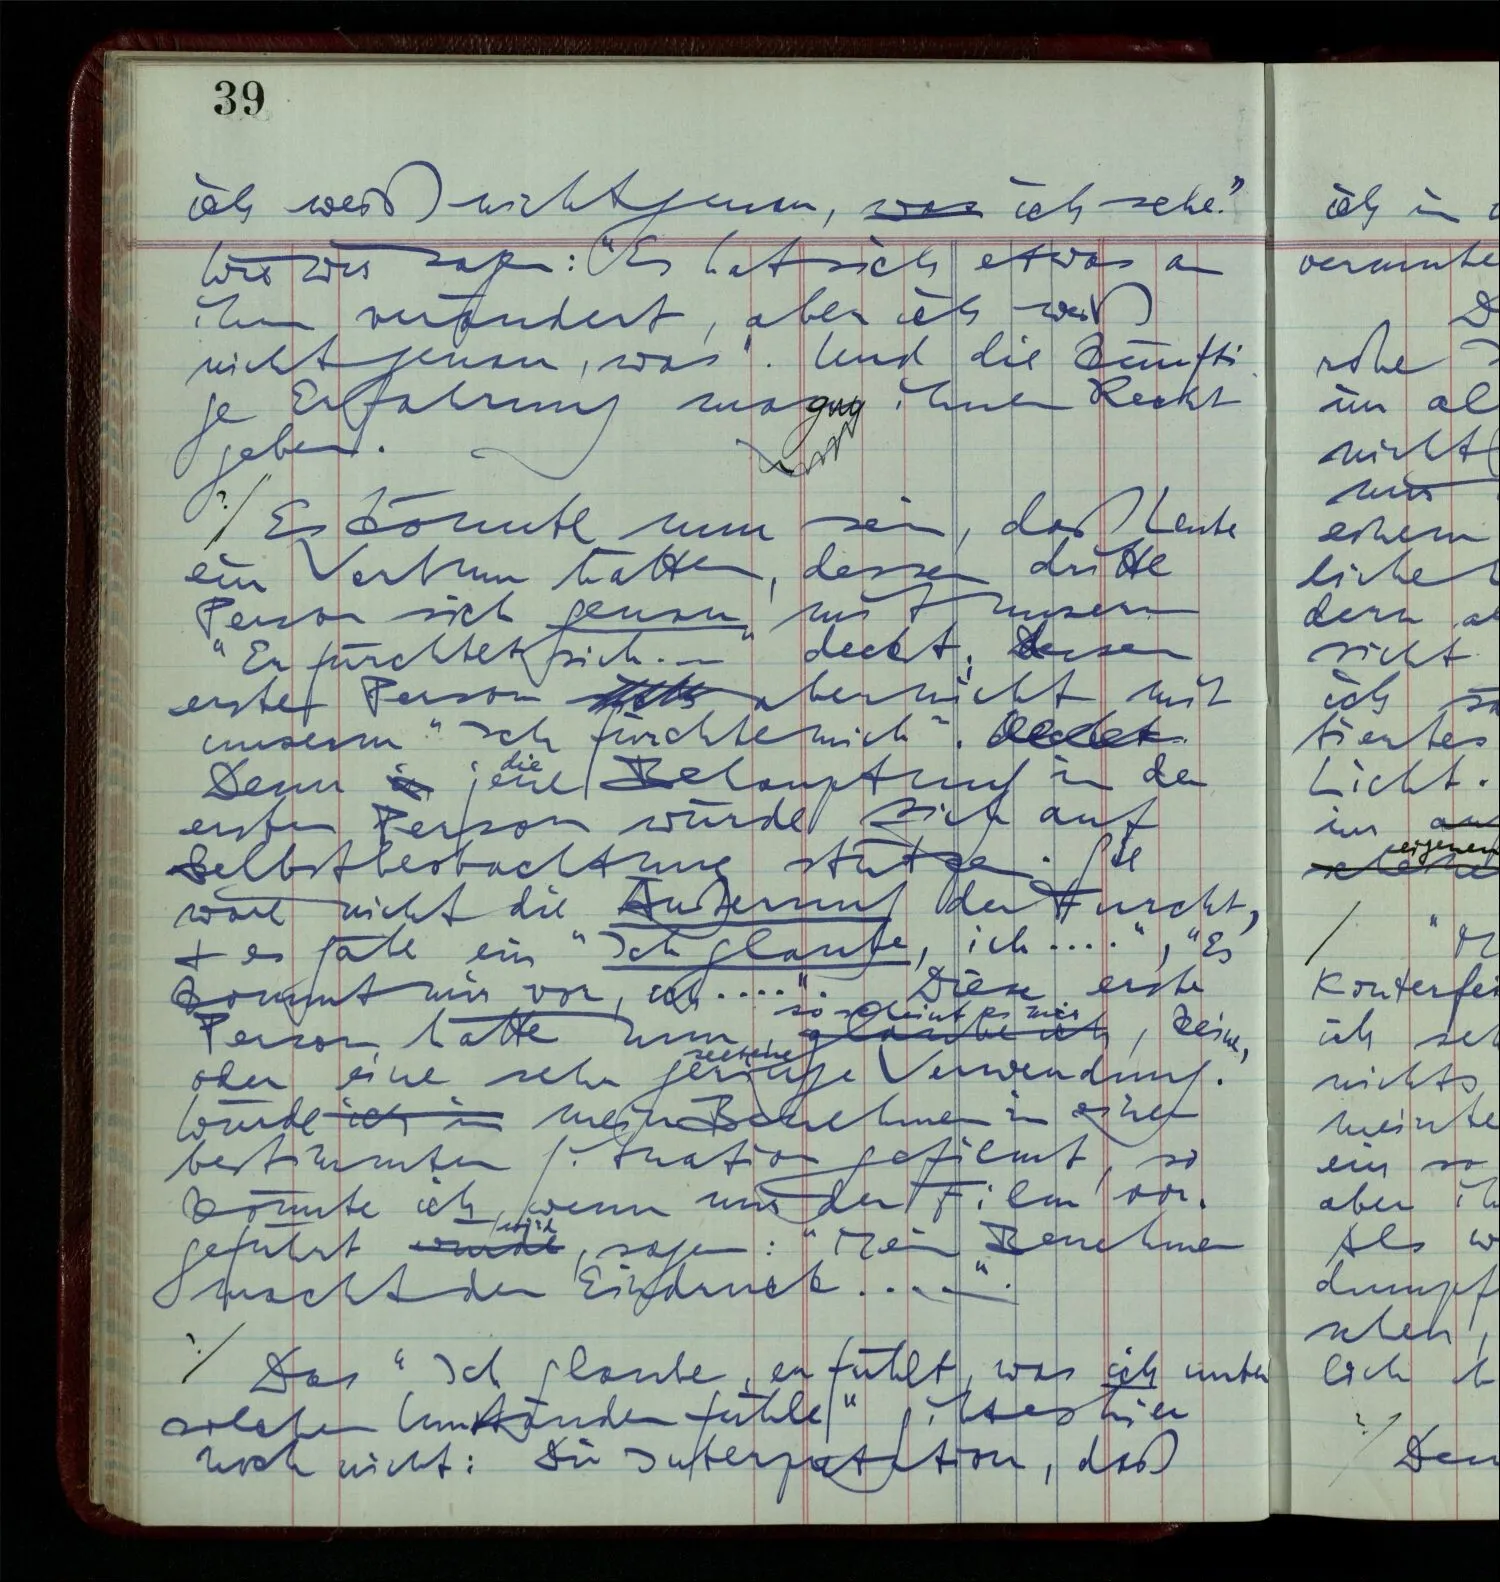 39
ich weiß nicht genau, was ich sehe."
Wie wir sagen: "Es hat sich etwas an
ihm verändert, aber ich weiß
nicht genau, was". Und die künfti-
ge Erfahrung mag ihnen Recht
geben.
?/ Es könnte nun sein, daß Leute
ein Verbum hätten, dessen dritte
Person sich genau mit unserm
"Er fürchtet sich..." deckt; dessen
erste Person aber nicht mit
unserm "Ich fürchte mich". deckt.
Denn in jene die Behauptung in der
ersten Person würde sich auf
Selbstbeobachtung stützen. Sie
wäre nicht die Äußerung der Furcht,
+ es gäbe ein "Ich glaube, ich....", "Es
kommt mir vor, ich....". Diese erste
so scheint es mir
Person hätte nun, glaube ich, keine,
seltene
oder eine sehr geringe Verwendung.
Würde ich in mein Benehmen in einer
bestimmten Situation gefilmt, so
könnte ich, wenn mir der Film vor-
wird
geführt wurde, sagen: "Mein Benehmen
macht den Eindruck....".
?/ Das "Ich glaube, er fühlt, was ich unter
solchen Umständen fühle" gibt es hier
noch nicht: Die Interpretation, daß
ich in
vermute
rohe
im al
nicht
mir
ehern
liche
dern
nicht
ich
tiertes
Licht.
im
eigenem
/
Konterfei
ich seh
nichts
meinte
ein so
aber ih
Als w
dumpf
sehen,
lich
?/ Den